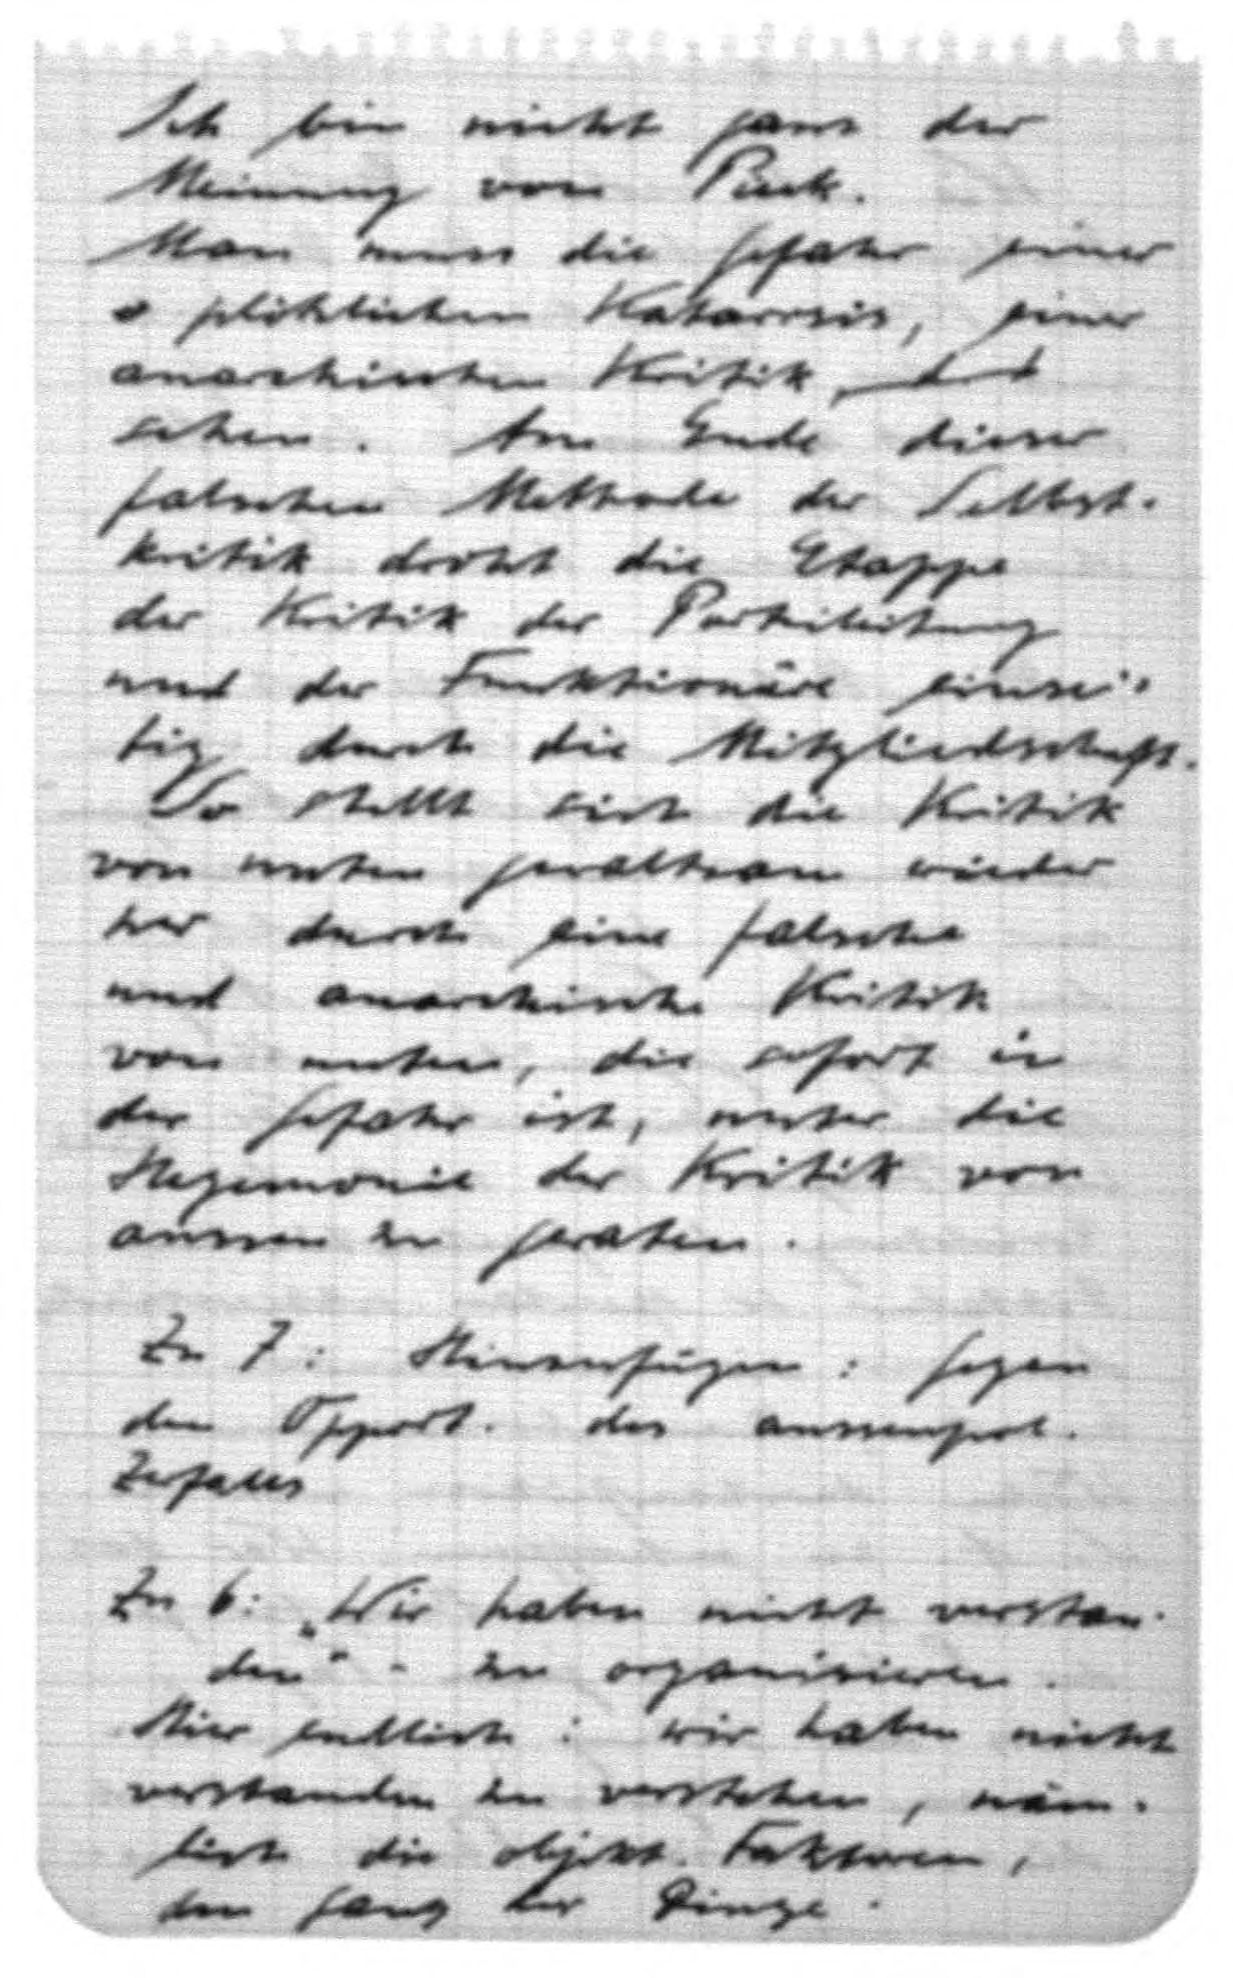 Ich bin nicht ganz der
Meinung von Pieck.
Man muss die Gefahr einer
plötzlichen Katarrsis, einer
anarchischen Kritik,
sehen. Am Ende dieser
falschen Methode der Selbst-
kritik droht die Etappe
der Kritik der Parteileitung
und der Funktionäre einsei-
tig durch die Mitgliedschaft.
So stellt sich die Kritik
von unten gewaltsam wieder
her durch eine falsche
und anarchische Kritik
von unten, die sofort in
der Gefahr ist, unter die
Hegemonie der Kritik von
aussen zu geraten.
Zu 7: Hinzufügen: Gegen
den Opport. des aussenpol.
Zufalls
Zu 6: „Wir haben nicht verstan-
den" - zu organisieren.
Hier endlich: wir haben nicht
verstanden zu verstehen, näm-
lich die objekt. Faktoren,
den Gang der Dinge.